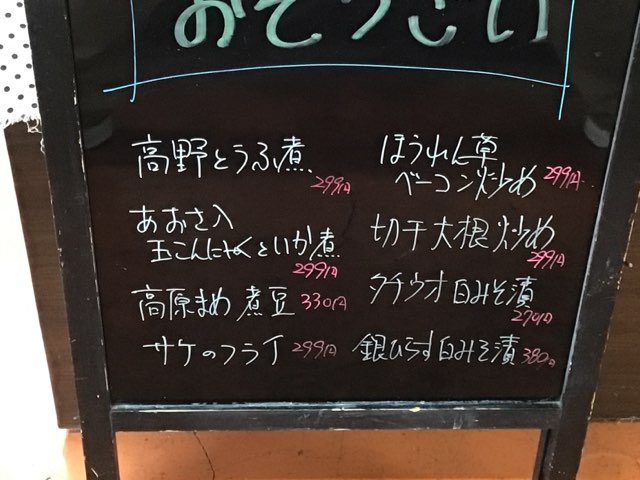 おそうざい
高野とうふ煮
299円
あおさ入
玉こんにゃくといか煮
299円
高原まめ煮豆 330円
サケのフライ 299円
ほうれん草
ベーコン炒め 299円
切干大根炒め
299円
タチウオ白みそ漬
270円
銀ひらす白みそ漬 380円